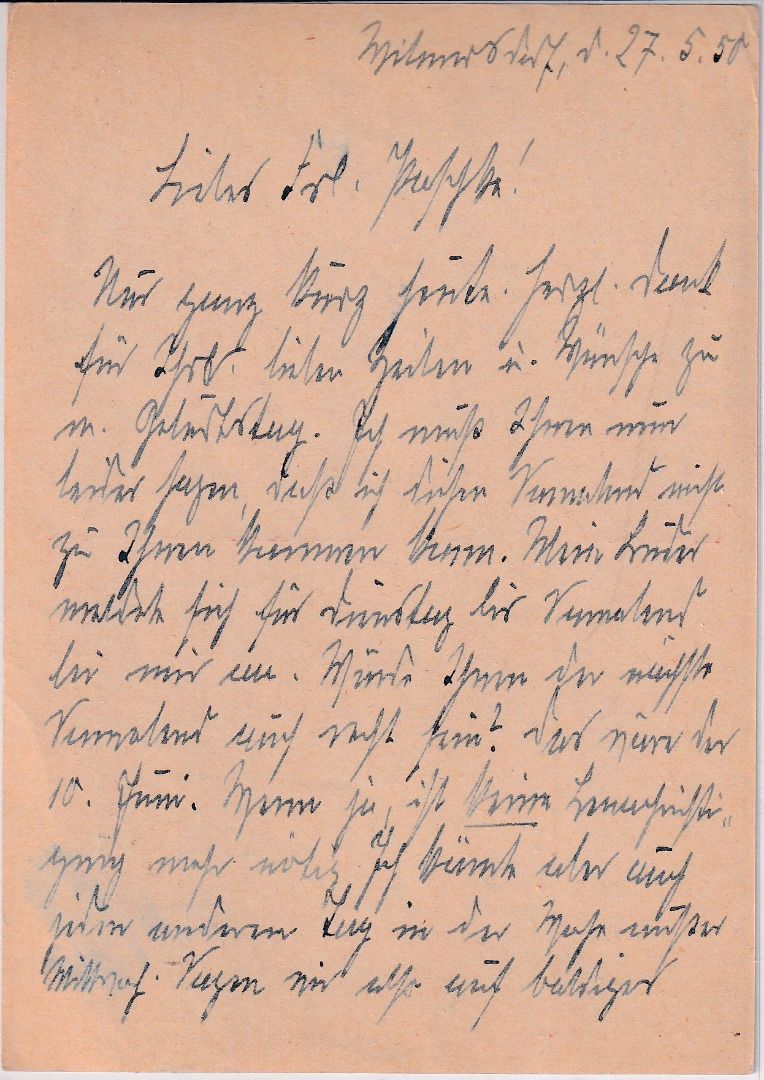 Wilmersdorf, d. 27.5.50
Liebes Frl. Paschke!
Nur ganz kurz heute. Herzl. Dank
für Ihre lieben Zeilen u. Wünsche zu
m. Geburtstag. Ich muß Ihnen nun
leider sagen, daß ich diesen Sonnabend nicht
zu Ihnen kommen kann. Mein Bruder
meldete sich für Dienstag bis Sonnabend
bei mir an. Würde Ihnen der nächste
Sonnabend auch recht sein? Das wäre der
10. Juni. Wenn ja, ist keine Benachrichti-
gung mehr nötig. Ich könnte aber auch
jeden anderen Tag in der Woche außer
Mittwoch. Sagen wir also auf baldiges